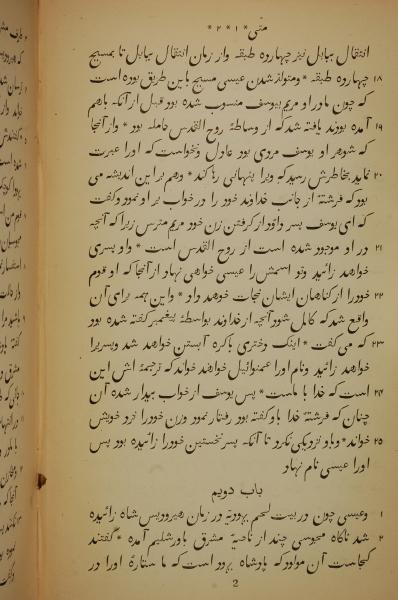 متی * ۱ * ۲ *
انتقال ببابل نیز چهارده طبقه واز زمان انتقال ببابل تا بمسیح
۱۸ چهارده طبقه * ومتولد شدن عیسی مسیح باین طریق بوده است
که چون مادر او مریم بیوسف منسوب شده بود قبل از آنکه باهم
۱۹ آمده بودند یافته شد که از وساطهٔ روح القدس حامله بود * واز آنجا
که شوهر او یوسف مردی بود عادل ونخواست که اورا عبرت
۲۰ نماید بخاطرش رسید که ویرا بپنهانی رها کند * وهم براین اندیشه می
بود که فرشتهٔ از جانب خداوند خود را در خواب بر او نمود وگفت
که ای یوسف پسر داؤد از گرفتن زن خود مریم مترس زیرا که آنچه
۲۱ در او موجود شده است از روح القدس است * واو پسری
خواهد زائید وتو اسمش را عیسی خواهی نهاد از آنجا که او قوم
۲۲ خود را از گناهان ایشان نجات خوهد داد * واین همه برای آن
واقع شد که کامل شود آنچه از خداوند بواسطهٔ پیغمبر گفته شده بود
۲۳ که می گفت * اینک دختری باکره آبستن خواهد شد وپسریرا
خواهد زائید ونام اورا عمنوائیل خواهند خواند که ترجمهٔ اش این
۲۴ است که خدا با ماست * پس یوسف از خواب بیدار شده آن
چنان که فرشتهٔ خدا باو گفته بود رفتار نمود وزن خود را نزد خویش
۲۵ خواند * وباو نزدیکی نکرد تا آنکه پسر نخستین خود را زائیده بود پس
اورا عیسی نام نهاد
باب دویم
۱ وعیسی چون در بیت لحم یهودیه در زمان هیرودیس شاه زائیده
۲ شد ناگاه مجوسی چند از ناحیهٔ مشرق باورشلیم آمده * گفتند
کجاست آن مولود که پادشاه یهود است که ما ستارهٔ اورا در
2